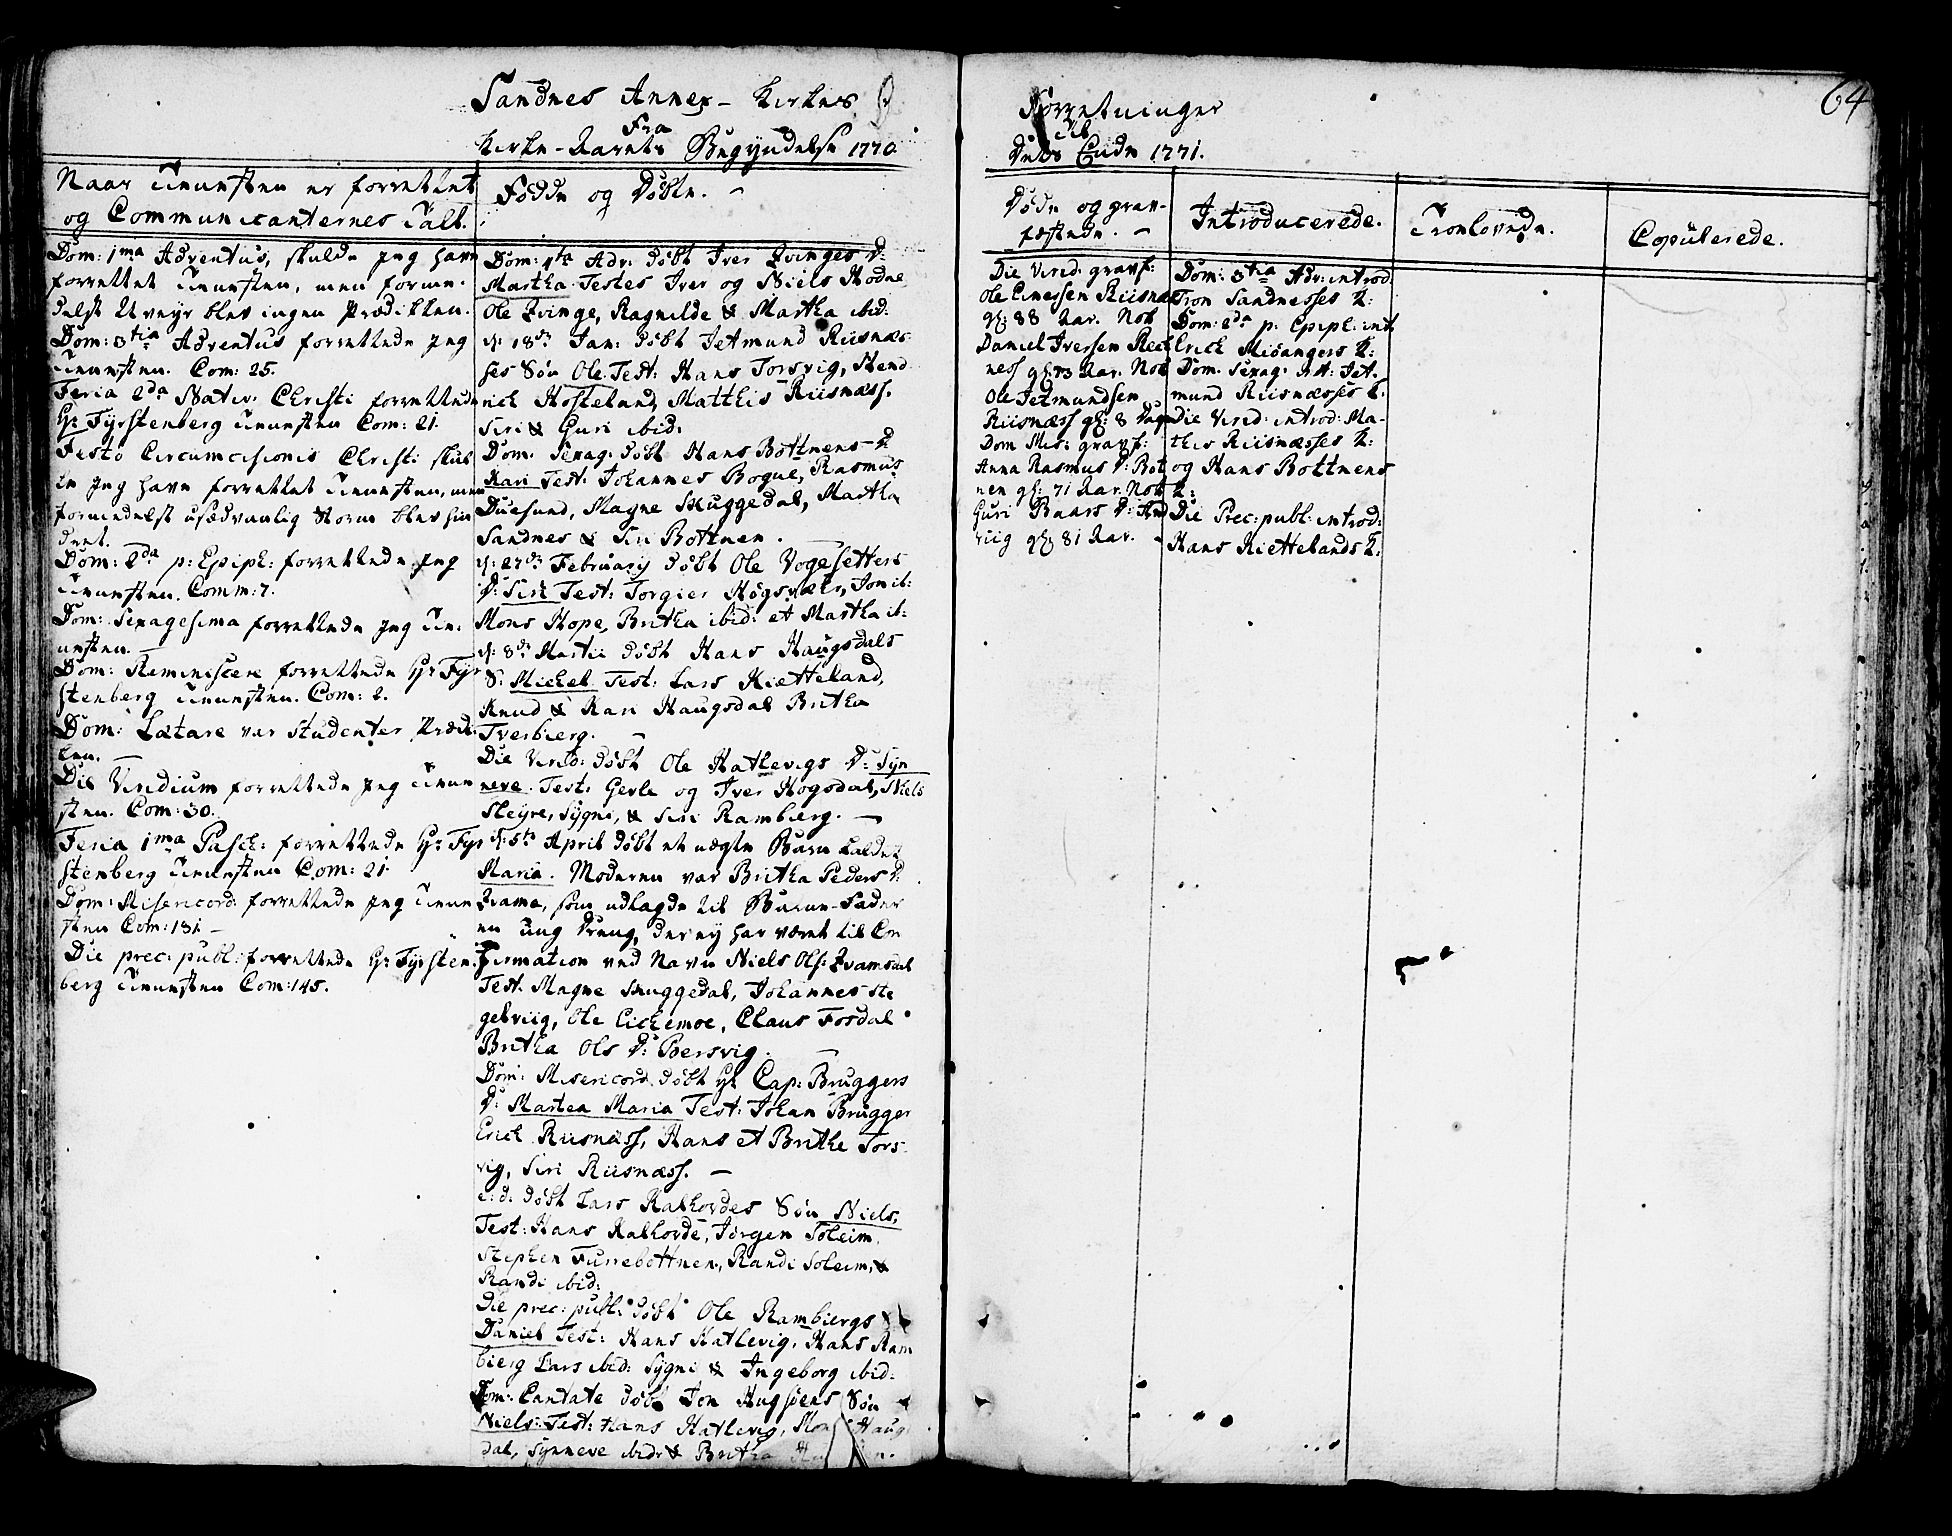 Sandnes Annex-Kirkes
Fra
Kirke-Aarets Begyndelse 1770.
Naar Tienesten er forrettet
og Communicanternes Tall.
Dom: 1ma Adventus, skulde jeg have
forrettet Tienesten, men forme-
delst Uveyr blev ingen Prædiken.
Dom: 3tia Adventus forrettede jeg
Tienesten. Com: 25.
Feria 2da Nativ: Christi forrettede
Hr Fyrstenberg Tienesten Com: 21.
Festo Circumcisionis Christi skul-
le jeg have forrettet Tienesten, men
formedelst usædvanlig Storm blev hin-
dret.
Dom: 2da p: Epiph: forrettede jeg
Tienesten. Comm: 7.
Dom: Sexagesima forrettede jeg Tie-
nesten.
Dom: Reminiscere forrettede Hr Fyr
stenberg Tienesten. Com: 2.
Dom: Lætare var Studenter Prædi-
ken.
Die Viridium forrettede jeg Tiene
sten. Com: 30.
Feria 1ma Pasch: forrettede Hr Fyr
stenberg Tienesten Com: 21.
Dom: Misericord: forrettede jeg Tiene
sten Com: 131.
Die prec: publ: forrettede Hr Fyrsten-
berg Tienesten Com: 145.
Fødde og Døbte.
Dom: 4ta Adv: døbt Iver Qvinges D:
Martha Testes Iver og Niels Hodne
Ole Qvinge, Ragnilde & Martha ibid.
d: 18de Jan: døbt Jetmund Riisnæs-
ses Søn Ole. Test: Hans Torsvig, Hend
rich Hosteland, Matthis Riisnæss.
Siri & Guri ibid:
Dom: Sexag: døbt Hans Bottnens D
Kari Test: Johannes Bogne, Rasmus
Duesund, Magne Skuggedal, Martha
Sandnes & Siri Bottnen.
d: 27de February døbt Ole Vogesetters
D: Siri Test: Torgier Høgsvær, Jon ib:
Mons Hope, Britha ibid: et Martha ib:
d: 8de Martii døbt Hans Haugsdals
S: Michel Test: Lars Kietteland,
Knud & Kari Haugsdal Britha
Tverbierg.
Die Virid: døbt Ole Hatlevigs D: Syn
neve. Test: Gerle og Iver Hogsdal, Niels
Steyre, Sygni, & Siri Ramberg.
d: 5te April døbt et uægte Barn kaldet
Maria. Moderen var Britha Peders D:
Qvame, som udlagde til Barne-Fader
en ung Dreng, der ey har været til Con
firmation ved Navn Niels Ols: Qvamsdal
Test. Magne Skuggedal, Johannes Ste
gelviig, Ole Eichemoe, Claus Fordal
Britha Ols D: Bersvig.
Dom: Misericord: døbt Hr Cap: Bruggers
D: Marten Maria Test: Johan Brugger
Erich Riisnæss, Hans et Brithe Tors-
vig, Siri Riisnæss.
e: d: døbt Lars Kalhovdes Søn Niels,
Test: Hans Kalhovde, Jørgen Soleim,
Stephen Furrebottnen, Randi Soleim, &
Randi ibid:
Die prec: publ: døbt Ole Rambiergs
Daniel Test: Hans Hatlevig, Hans Ram
bierg Lars ibid: Sygni & Ingeborg ibid:
Dom: Cantate døbt Jon Hugsiens Søn
Niels: Test: Hans Hatlevig, Mons Haug
dal, Synneve ibid: & Britha
Forretninger
til
Dets Ende 1771.
64
Døde og grav-
fæstede.
Die Virid: gravf:
Ole Einessen Riisnæs
gl: 88 Aar. Nob
Daniel Iversen Rech
ness gl: 73 Aar. Nob
Ole Jetmundsen
Riisnæss gl: 8 Dage
Dom Mis: gravf:
Anna Rasmus D: Bot
nen gl: 71 Aar. Nob
Guri Baars D: And
viig gl: 81 Aar.
Introducerede.
Dom: 3tia Adv: introd:
Tron Sandnesses K:
Dom: 2da p: Epiph: int.
Erich Misangers K:
Dom. Sexag: int: Jet.
mund Riisnæsses K:
Die Virid: introd: Ma-
this Riisnæsses K:
og Hans Bottnens
K:
Die Prec: publ: introd:
Hans Kiettelands K:
Troelovede.
Copulerede.